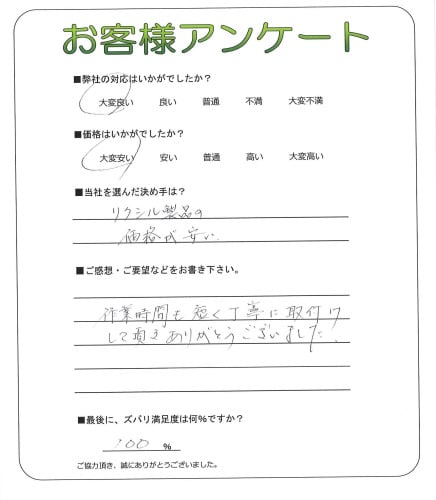 お客様アンケート
■弊社の対応はいかがでしたか？
大変良い 良い 普通 不満 大変不満
■価格はいかがでしたか？
大変安い 安い 普通 高い 大変高い
■当社を選んだ決め手は？
リクシル製品の
価格が安い
■ご感想・ご要望などをお書き下さい。
作業時間も短く丁寧に取付け
して頂きありがとうございました。
■最後に、ズバリ満足度は何%ですか？
100 %
ご協力頂き、誠にありがとうございました。